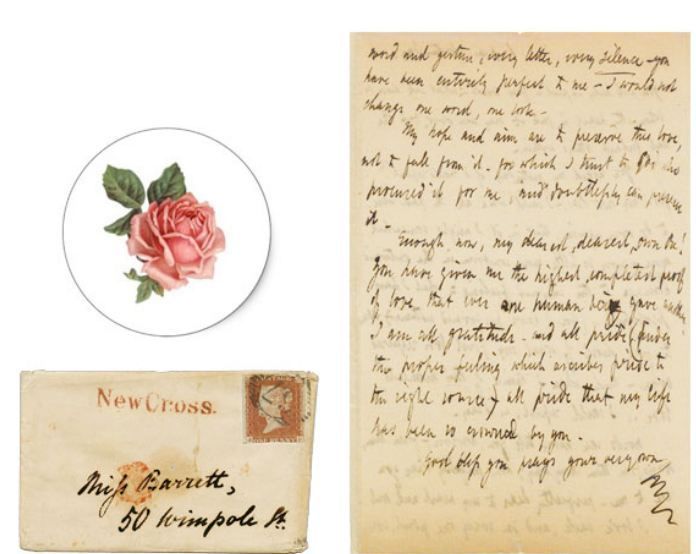 New Cross.
ONE PENNY
Miss Barrett,
50 Wimpole St.
word and gesture, every letter, every silence - you
have been entirely perfect to me - I would not
change one word, one look -
My hope and aim are to preserve this love,
not to fall from it - for which I trust to God who
procured it for me, and doubtlessly can preserve
it.
Enough now, my dearest, dearest, own Ba!
You have given me the highest, completest proof
of love that ever one human being gave another
I am all gratitude - and all pride, (under
the proper feeling which ascribes pride to
the right source) all pride that my life
has been so crowned by you.
God bless you prays your very own